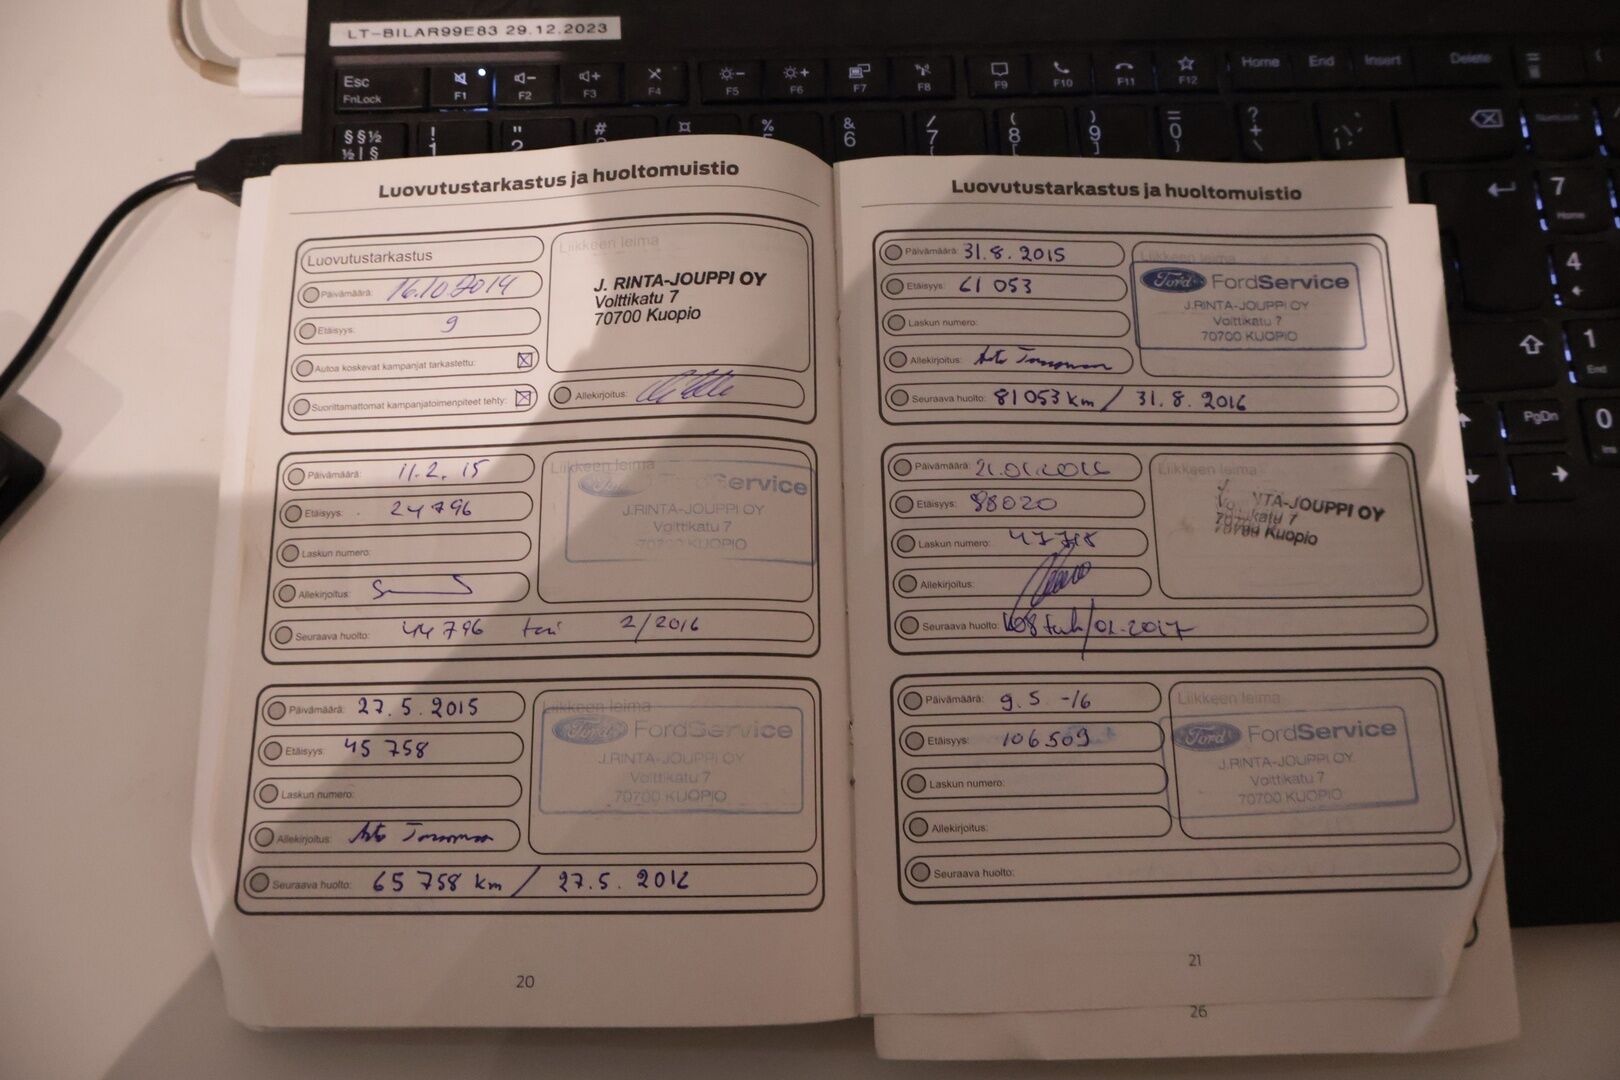 LT-BILAR99E83 29.12.2023
Esc
FnLock
F1
F2
F3
F4
F5
F6
F7
F8
F9
F10
F11
F12
Home
End
Insert
Delete
Luovutustarkastus ja huoltomuistio
Luovutustarkastus
Päivämäärä: 16.10.2014
Etäisyys: 9
Autoa koskevat kampanjat tarkastettu:
Suorittamattomat kampanjatoimenpiteet tehty:
Liikkeen leima
J. RINTA-JOUPPI OY
Volttikatu 7
70700 Kuopio
Allekirjoitus:
Päivämäärä: 11.2.15
Etäisyys: 24796
Laskun numero:
Allekirjoitus:
Seuraava huolto: 44796 tai 2/2016
Liikkeen leima
Service
J.RINTA-JOUPPI OY
Volttikatu 7
70700 KUOPIO
Päivämäärä: 27.5.2015
Etäisyys: 45 758
Laskun numero:
Allekirjoitus:
Seuraava huolto: 65 758 km / 27.5.2016
Liikkeen leima
Ford FordService
J.RINTA-JOUPPI OY
Volttikatu 7
70700 KUOPIO
20
Luovutustarkastus ja huoltomuistio
Päivämäärä: 31.8.2015
Etäisyys: 61 053
Laskun numero:
Allekirjoitus:
Seuraava huolto: 81053 km / 31.8.2016
Liikkeen leima
Ford FordService
J.RINTA-JOUPPI OY
Volttikatu 7
70700 KUOPIO
Päivämäärä: 21.01.2016
Etäisyys: 88020
Laskun numero: 47718
Allekirjoitus:
Seuraava huolto: 108 tkm/01.2017
Liikkeen leima
J. NTA-JOUPPI OY
katu 7
70700 Kuopio
Päivämäärä: 9.5 -16
Etäisyys: 106509
Laskun numero:
Allekirjoitus:
Seuraava huolto:
Liikkeen leima
Ford FordService
J.RINTA-JOUPPI OY
Volttikatu 7
70700 KUOPIO
21
26
7
Home
4
1
End
PgDn
0
Ins